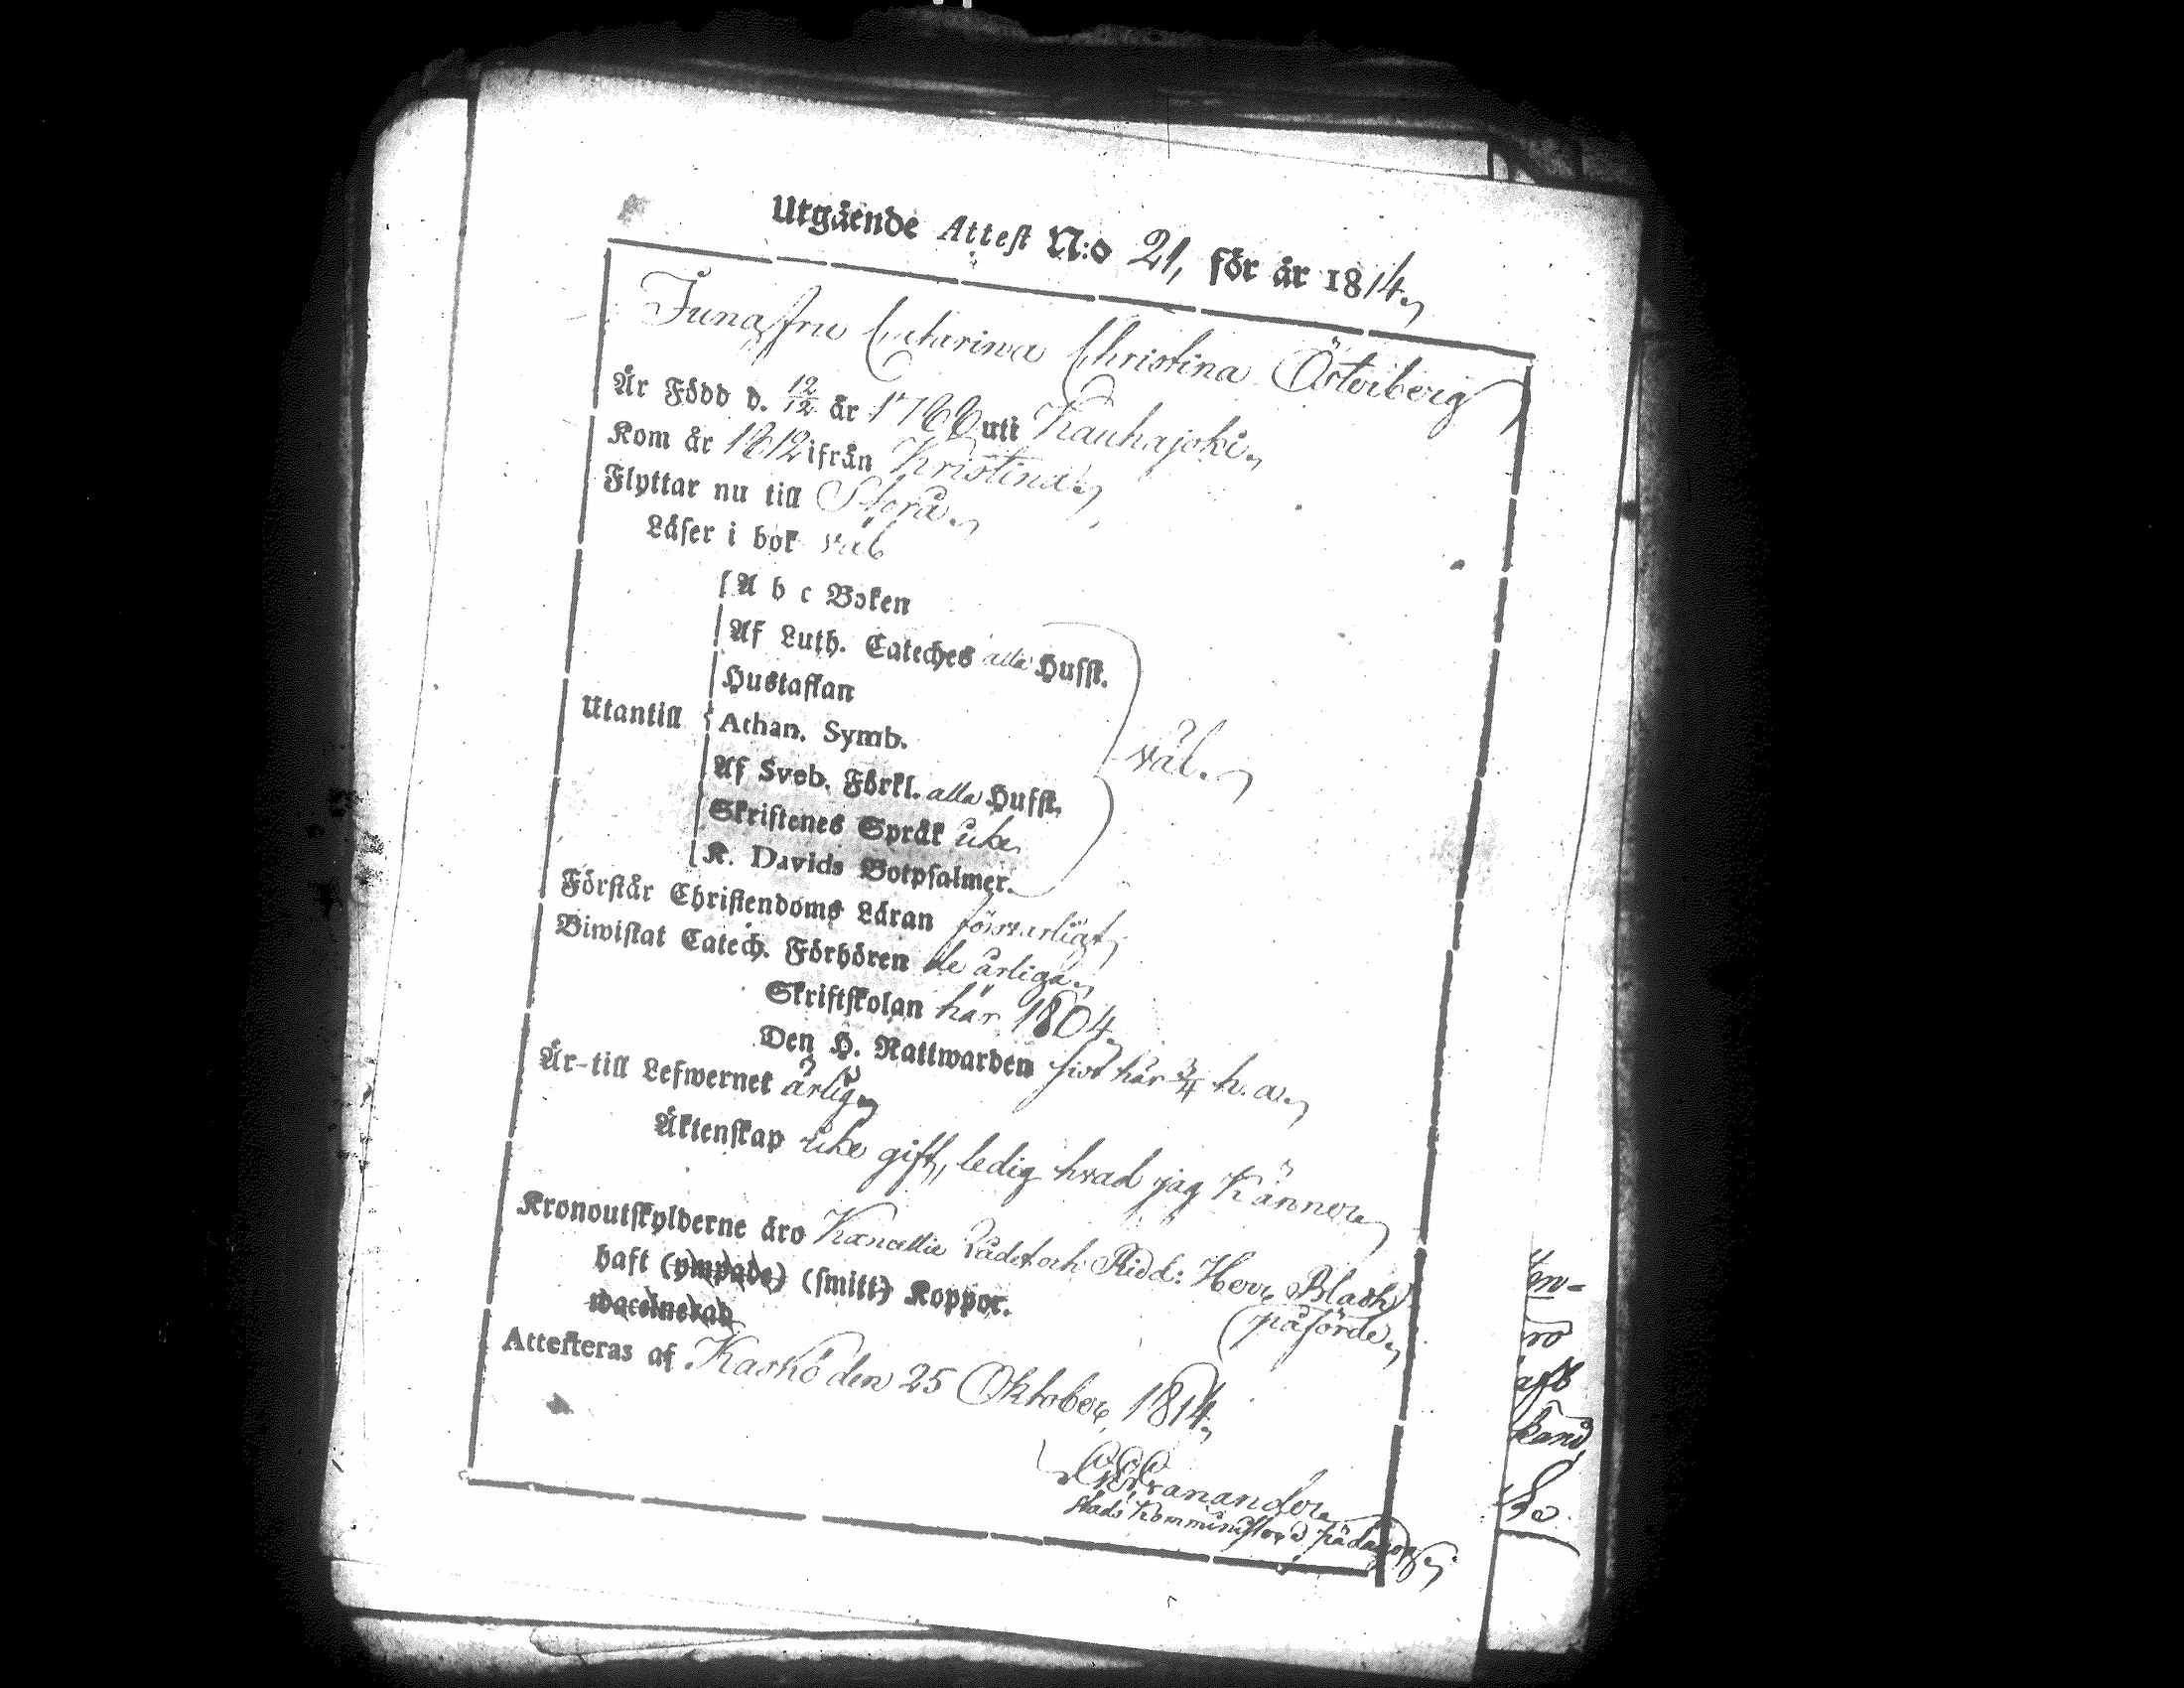 Utgående Attest N:o 21, för år 1814.
Jungfru Catharina Christina Österberg
Är Född d. 12/12 år 1766 uti Kauhajoki.
Kom år 1812 ifrån Kristina.
Flyttar nu till Storå.
Läser i bok väl
A b c Boken
Af Luth. Cateches alla Hufst.
Hustaflan
Utantill Athan. Symb. väl.
Af Sveb. Förkl. alla Hufst.
Skriftenes Språk icke
K. Davids Botpsalmer.
Förstår Christendoms Läran försvarligt
Biwistat Catech. Förhören de årliga
Skriftskolan här 1804
Den H. Nattwarden sist här 3/4 h. a.
Är till Lefwernet ärlig
Äktenskap icke gift, ledig hvad jag känner
Kronoutskylderne äro Kancellie Rådet och Ridd: Herr Bladh
påförde
haft (ympade) (smitt) Koppor.
waccinerad
Attesteras af Kaskö den 25 Oktober 1814.
Granander
Stads Kommunister & Pädagog